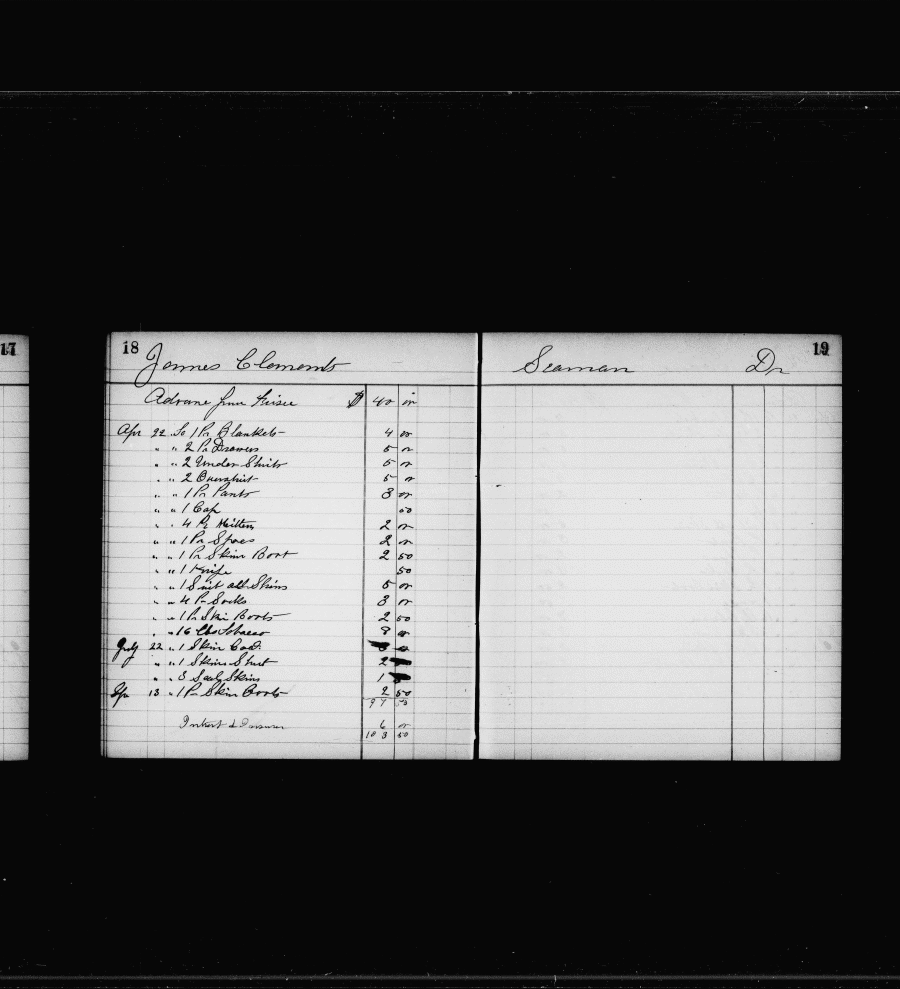 17
18
James Clements
Advance from Cruise $ 40 00
Apr 22 To 1 Pr Blankets 4 00
" " 2 Pr Drawers 5 00
" " 2 Under Shirts 5 00
" " 2 Overshirt 5 00
" " 1 Pr Pants 3 00
" " 1 Cap 50
" " 4 Pr Mittens 2 00
" " 1 Pr Shoes 2 00
" " 1 Pr Skin Boot 2 50
" " 1 Knife 50
" " 1 Suit Skins 5 00
" " 4 Pr Socks 3 00
" " 1 Pr Skin Boots 2 50
" " 16 Lbs Tobacco 8 00
July 22 " 1 Skin
" " 1 Skin Shirt 2
" " 3 Skins 1
Sep 13 " 1 Pr Skin Boots 2 50
97 50
6 00
103 50
19
Seaman Dr